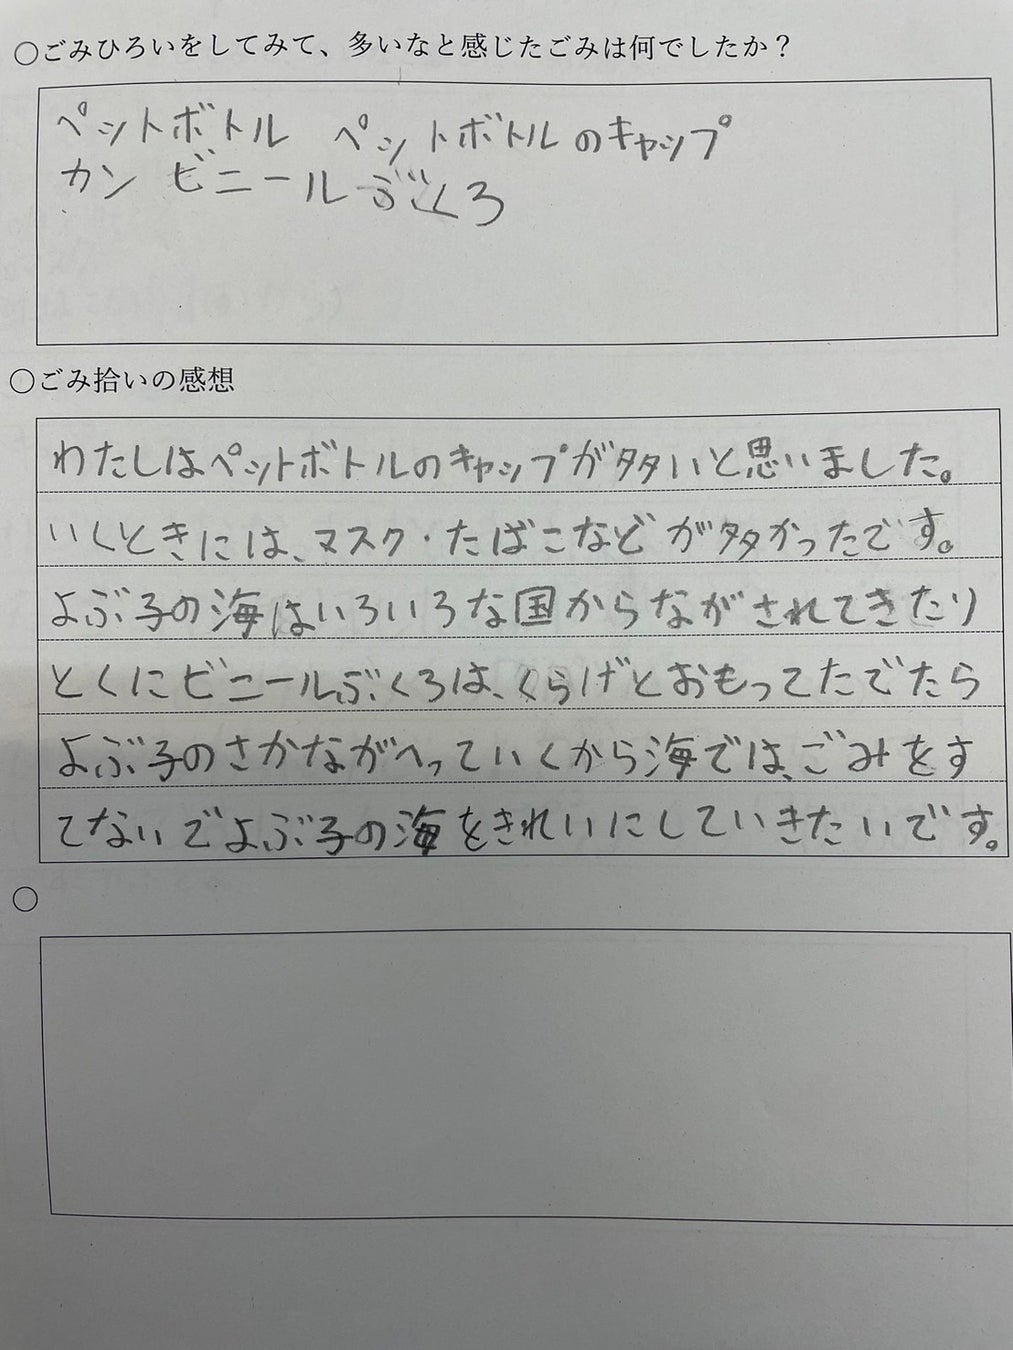 ○ごみひろいをしてみて、多いなと感じたごみは何でしたか？
ペットボトル ペットボトルのキャップ
カン ビニールぶくろ
○ごみ拾いの感想
わたしはペットボトルのキャップが多いと思いました。
いくときには、マスク・たばこなどが多かったです。
よぶ子の海はいろいろな国からながされてきたり
とくにビニールぶくろは、くらげとおもってたでたら
よぶ子のさかながへっていくから海では、ごみをす
てないでよぶ子の海をきれいにしていきたいです。
○